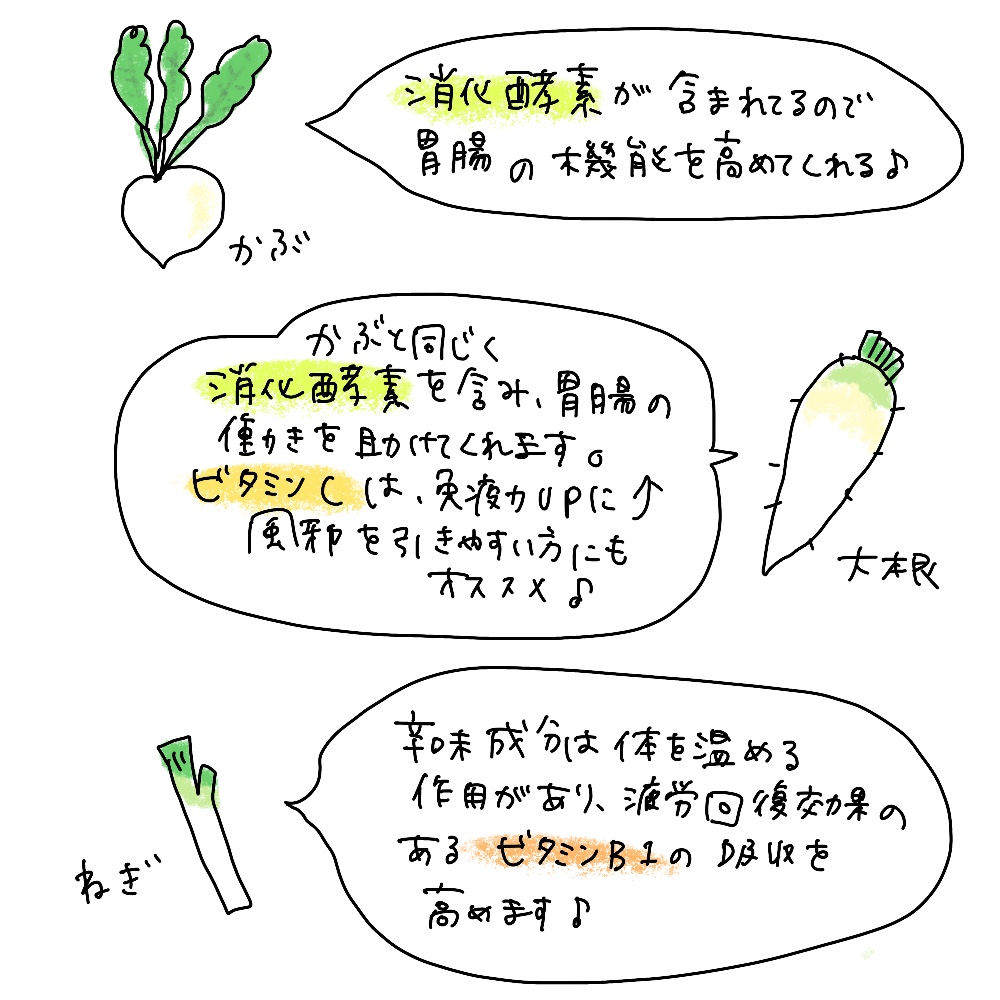 消化酵素が含まれてるので
胃腸の機能を高めてくれる♪
かぶ
かぶと同じく
消化酵素を含み、胃腸の
働かきを助けてくれます。
ビタミンCは、免疫力UPに↑
風邪を引きやすい方にも
オススメ♪
大根
辛味成分は体を温める
作用があり、疲労回復効果の
あるビタミンB1の吸収を
高めます♪
ねぎ